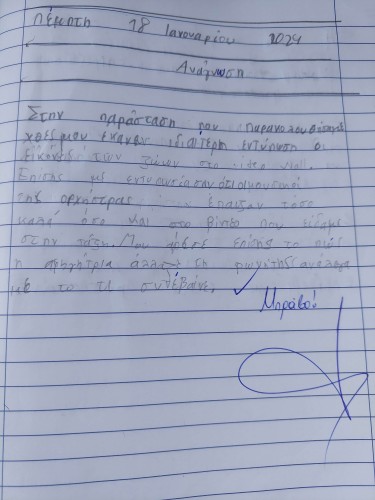 Πέμπτη 18 Ιανουαρίου 2024
Ανάγνωση
Στην παράσταση που παρακολούθησα
χθες μου έκαναν ιδιαίτερη εντύπωση οι
εικόνες των ζώων στο video wall.
Επίσης με εντυπωσίασαν ότι οι μουσικοί
της ορχήστρας έπαιξαν τόσο
καλά όσο και στο βίντεο που είδαμε
στην τάξη. Μου άρεσε επίσης το πώς
η αφηγήτρια άλλαζε τη φωνή της ανάλογα
με το τι συνέβαινε.
Μπράβο!